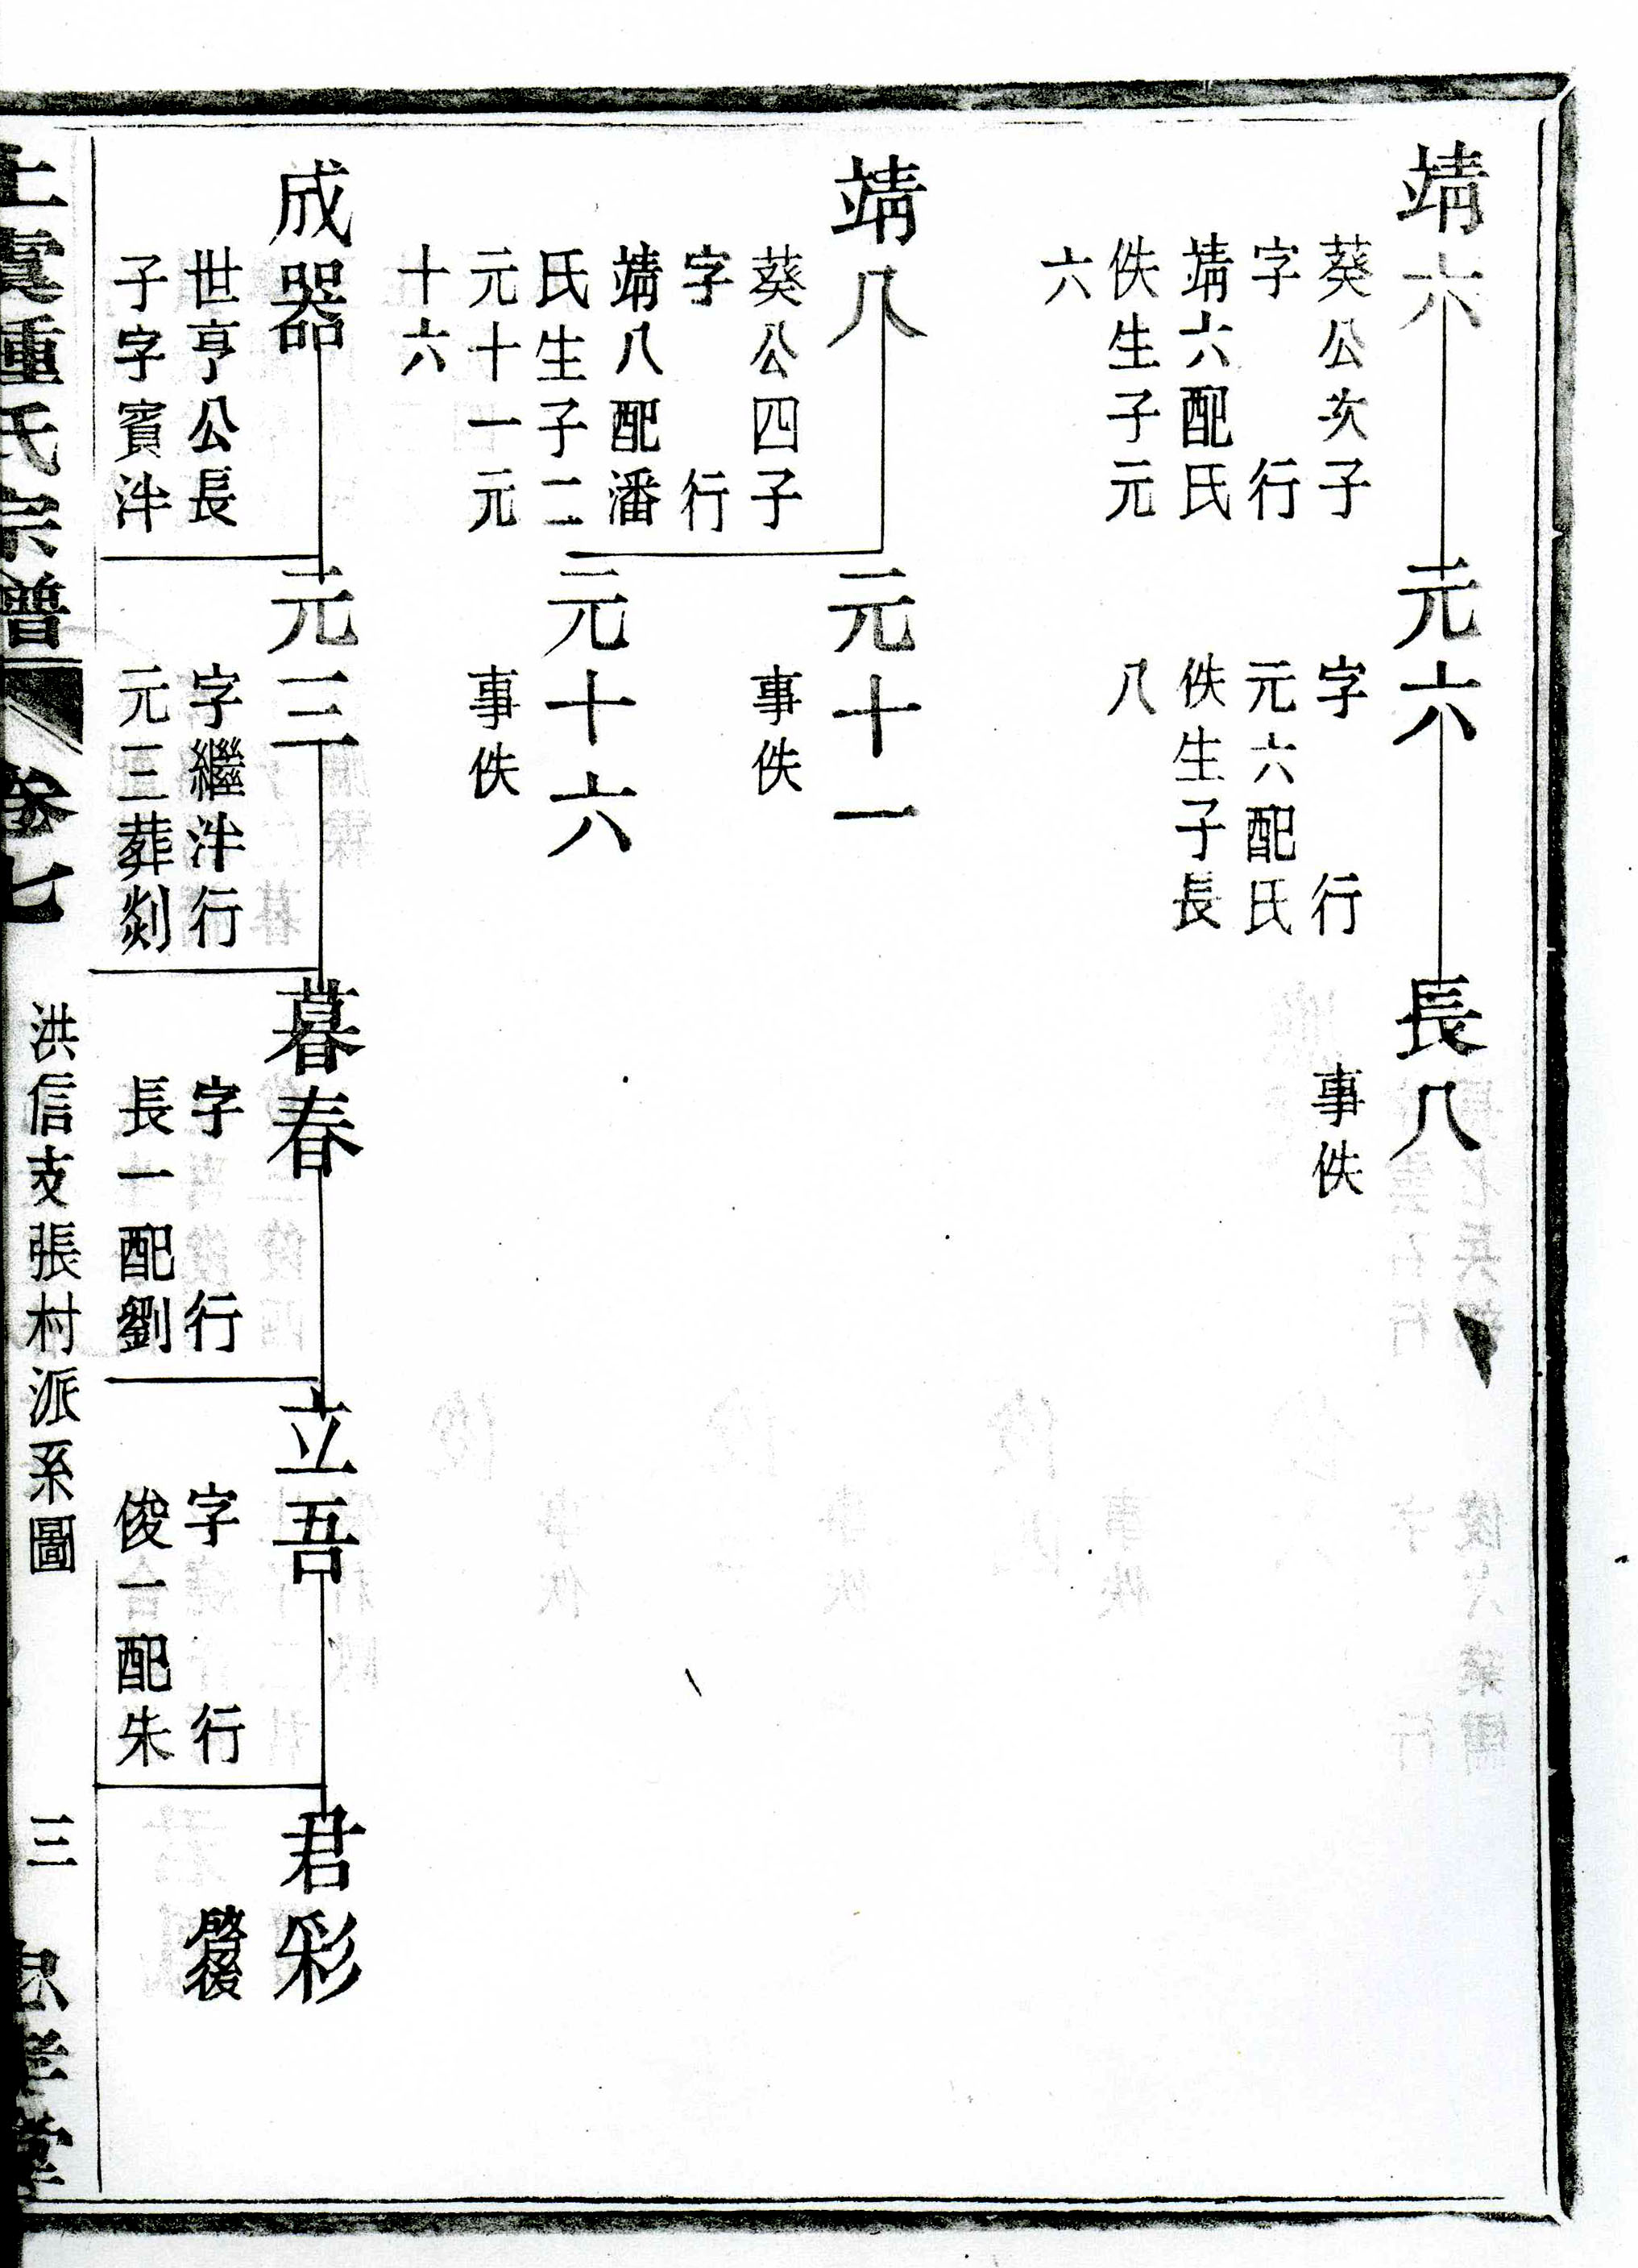 靖六
葵公次子
字 行
靖六配氏
佚生子元
六
元六
字 行
元六配氏
佚生子長
八
長八
事佚
靖八
葵公四子
字 行
靖八配潘
氏生子二
元十一元
十六
元十一
事佚
元十六
事佚
成器
世亨公長
子字賓泮
元三
字繼泮行
元三葬剡
暮春
字 行
長一配劉
立吾
字 行
俊一配朱
君彩
啓後
上虞鍾氏宗譜
卷七
洪信支張村派系圖
三
忠孝堂